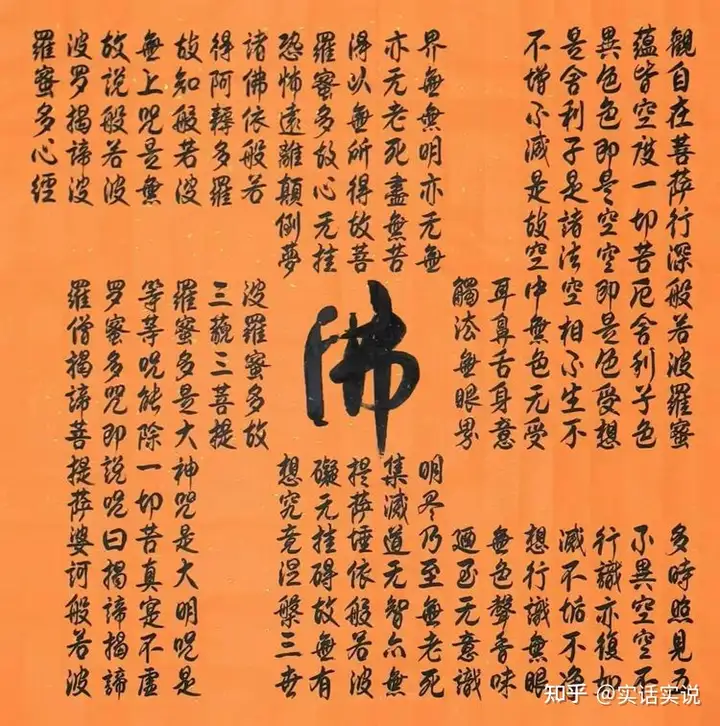 觀自在菩薩行深般若波羅蜜
多時照見五
蘊皆空度一切苦厄舍利子色
不異空空不
異色色即是空空即是色受想
行識亦復如
是舍利子是諸法空相不生不
滅不垢不淨
不增不減是故空中無色无受
想行識無眼
耳鼻舌身意
無色聲香味
觸法無眼界
廼至无意識
界無無明亦无無
明尽乃至無老死
亦无老死盡無苦
集滅道无智亦無
得以無所得故菩
提萨埵依般若波
羅蜜多故心无挂
礙无挂碍故無有
恐怖遠離顛倒夢
想究竟涅槃三世
諸佛依般若
波羅蜜多故
得阿耨多羅
三藐三菩提
故知般若波
羅蜜多是大神咒是大明呪是
無上呪是無
等等呪能除一切苦真寔不虛
故說般若波
罗蜜多咒即說呪曰揭諦揭諦
波罗揭諦波
羅僧揭諦菩提薩婆訶般若波
羅蜜多心經
佛
知乎 @实话实说